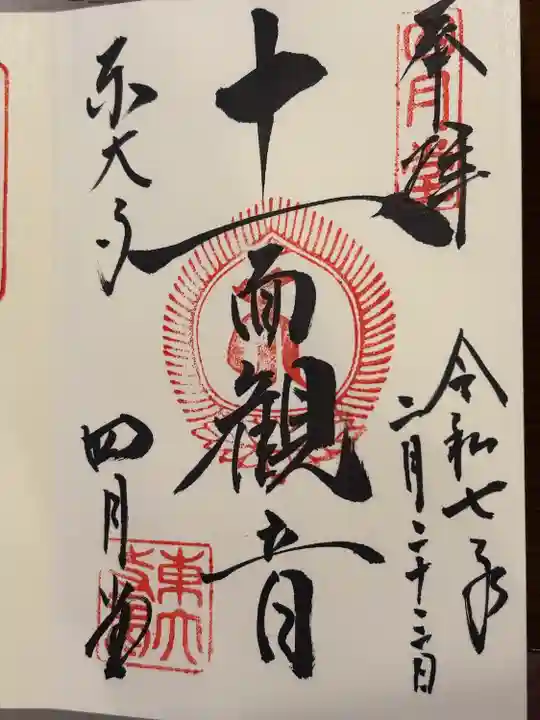 奉拝
四月堂
令和七年
二月二十二日
十一面観音
東大寺
四月堂